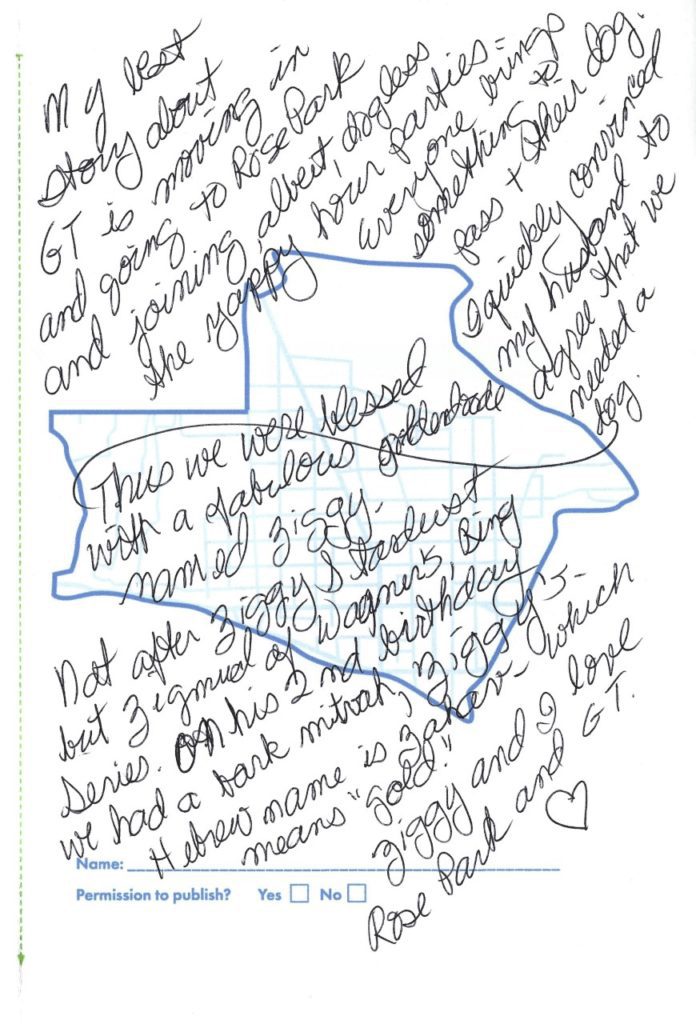 My best
story about
GT is moving in
and going to Rose Park
and joining, albeit, dogless
the yappy hour parties -
everyone brings
something to
pass + their dog.
I quickly convinced
my husband to
agree that we
needed a
dog.
Thus we were blessed
with a fabulous
named Ziggy.
Not after Ziggy Stardust
but Zigmund of Wagners, Ring
series. On his 2nd birthday
we had a bark mitvah, Ziggy's
Hebrew name is Zahev - which
means "gold."
Ziggy and I love
Rose Park and GT.
♡
Name:
Permission to publish? Yes ☐ No ☐